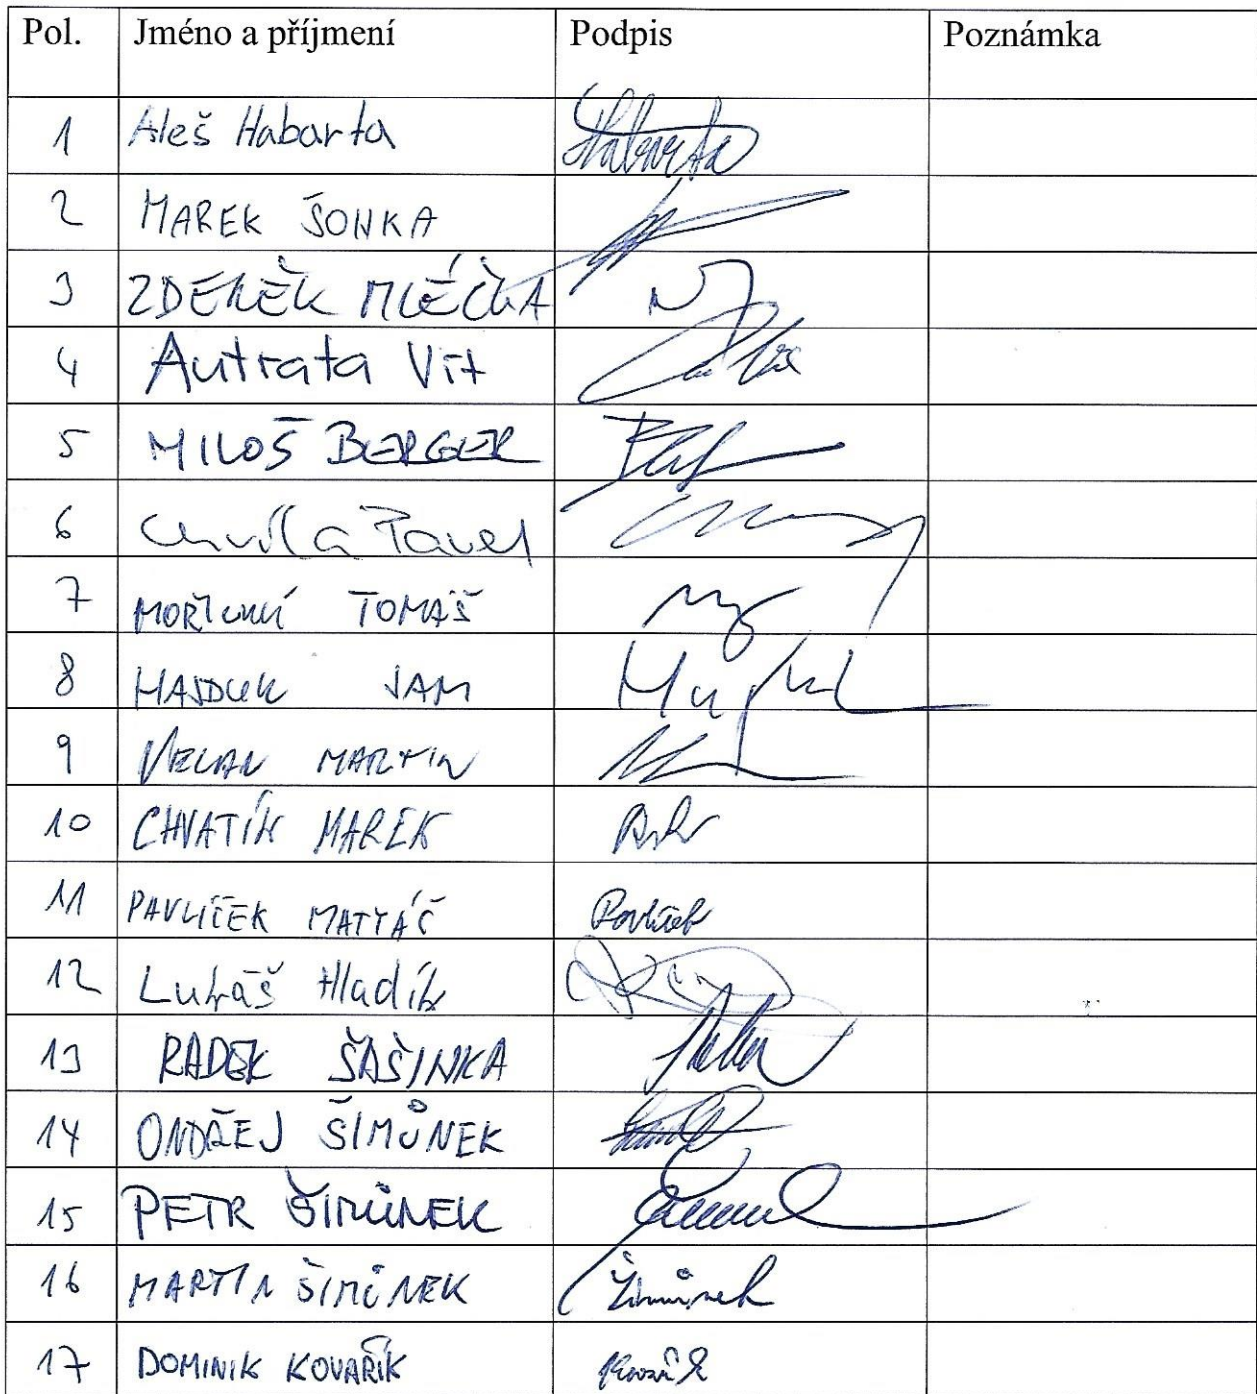 Pol. Jméno a příjmení Podpis Poznámka
1 Aleš Habarta Habarta
2 MAREK ŠONKA
3 ZDENĚK MLÉČKA
4 Autrata Vít
5 MILOŠ BERGER
6 Chvíla Pavel
7 TOMÁŠ
8 HAJDUK JAN
9 VELAN MARTIN
10 CHVATÍK MAREK
11 PAVLÍČEK MATYÁŠ Pavlíček
12 Lukáš Hladík
13 RADEK ŠAŠINKA
14 ONDŘEJ ŠIMŮNEK
15 PETR ŠIMŮNEK
16 MARTIN ŠIMŮNEK Šimůnek
17 DOMINIK KOVAŘÍK Kovařík